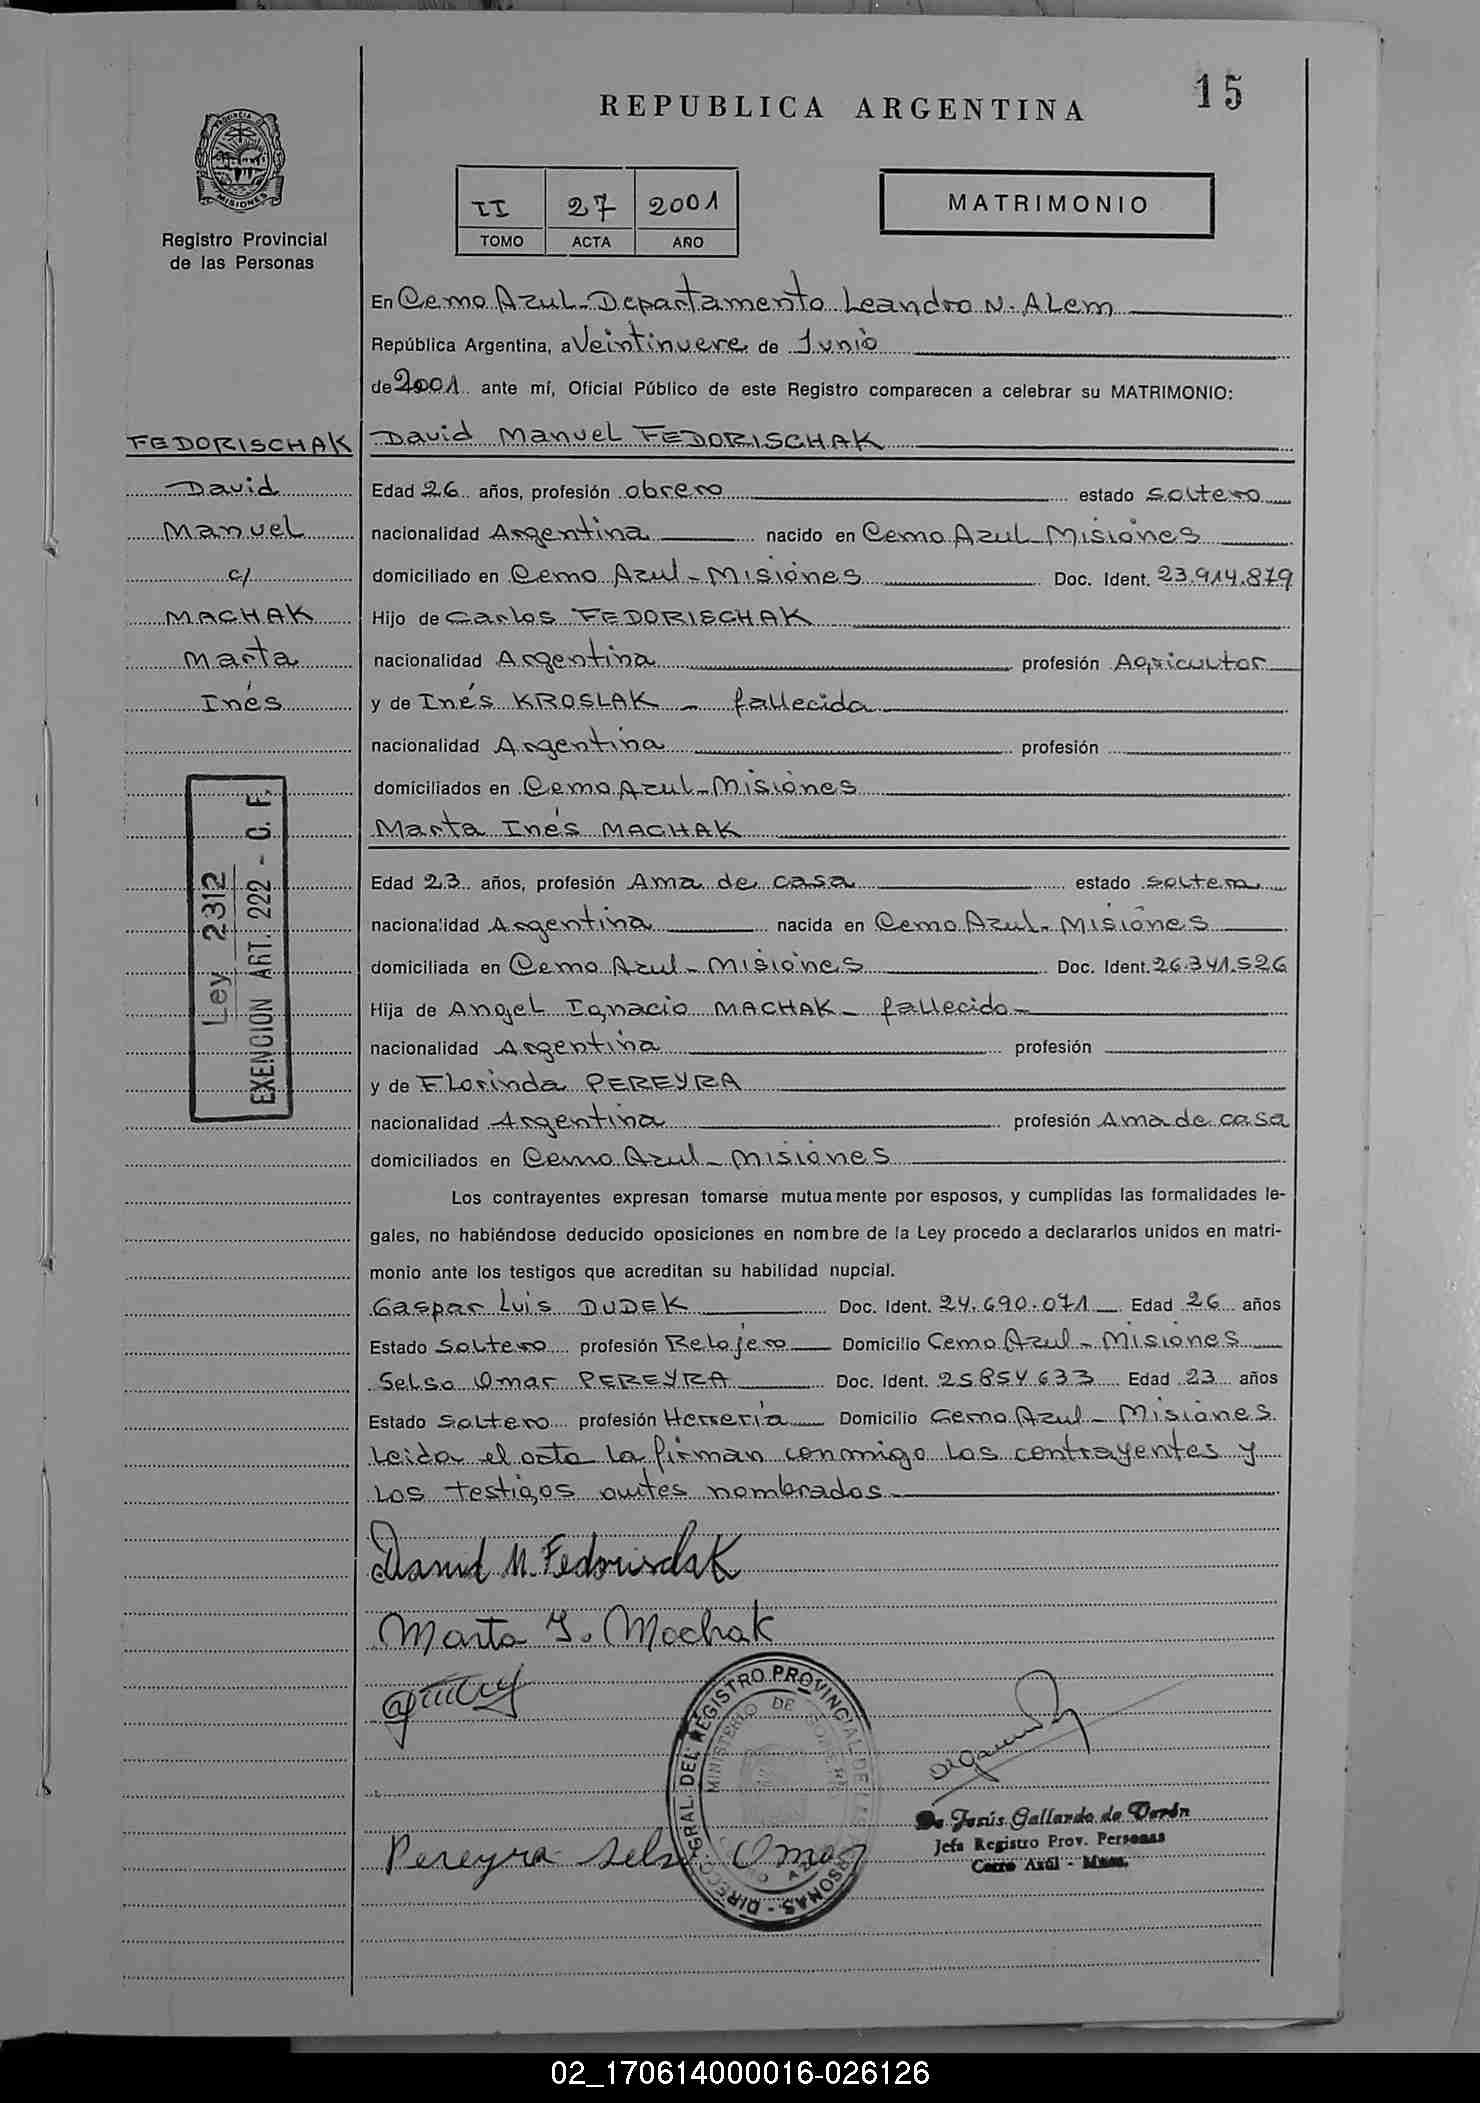 15
REPUBLICA ARGENTINA
PROVINCIA DE
MISIONES
Registro Provincial
de las Personas
II 27 2001
TOMO ACTA AÑO
MATRIMONIO
En Cerro Azul - Departamento Leandro N. Alem
República Argentina, a Veintinueve de Junio
de 2001 ante mí, Oficial Público de este Registro comparecen a celebrar su MATRIMONIO:
FEDORISCHAK
David
Manuel
c/
MACHAK
Marta
Inés
Ley 2312
EXENCION ART. 222 - C. F.
David Manuel FEDORISCHAK
Edad 26 años, profesión obrero estado soltero
nacionalidad Argentina nacido en Cerro Azul - Misiones
domiciliado en Cerro Azul - Misiones Doc. Ident. 23.914.879
Hijo de Carlos FEDORISCHAK
nacionalidad Argentina profesión Agricultor
y de Inés KROSLAK - fallecida
nacionalidad Argentina profesión
domiciliados en Cerro Azul - Misiones
Marta Inés MACHAK
Edad 23 años, profesión Ama de casa estado soltera
nacionalidad Argentina nacida en Cerro Azul - Misiones
domiciliada en Cerro Azul - Misiones Doc. Ident. 26.341.526
Hija de Angel Ignacio MACHAK - fallecido -
nacionalidad Argentina profesión
y de Florinda PEREYRA
nacionalidad Argentina profesión Ama de casa
domiciliados en Cerro Azul - Misiones
Los contrayentes expresan tomarse mutuamente por esposos, y cumplidas las formalidades le-
gales, no habiéndose deducido oposiciones en nombre de la Ley procedo a declararlos unidos en matri-
monio ante los testigos que acreditan su habilidad nupcial.
Gaspar Luis DUDEK Doc. Ident. 24.690.071 Edad 26 años
Estado Soltero profesión Relojero Domicilio Cerro Azul - Misiones
Selso Omar PEREYRA Doc. Ident. 25854633 Edad 23 años
Estado Soltero profesión Herrería Domicilio Cerro Azul - Misiones
Leida el acta la firman conmigo los contrayentes y
los testigos antes nombrados
David M. Fedorischak
Marta I. Machak
DIRECC. GRAL. DEL REGISTRO PROVINCIAL DE LAS PERSONAS -
MINISTERIO DE GOBIERNO
Pereyra Selso Omar
De Jesús Gallardo de Verón
Jefa Registro Prov. Personas
Cerro Azúl - Mnes.
02_170614000016-026126